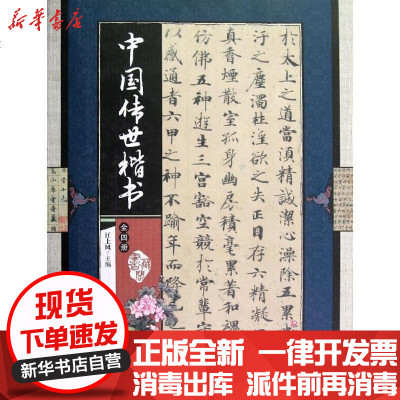 新华书店
中国传世楷书
全四册
主编
於太上之道當湏精誠潔心澡除五累
汙之塵濁杜淫欲之失正目存六精凝
真香煙散室孤身幽房積毫累著和魂
仿佛五神遊生三宮豁空競於常輩守
以感通者六甲之神不踰年而降
正版全新 一律开发票
消毒出库 派件前再消毒